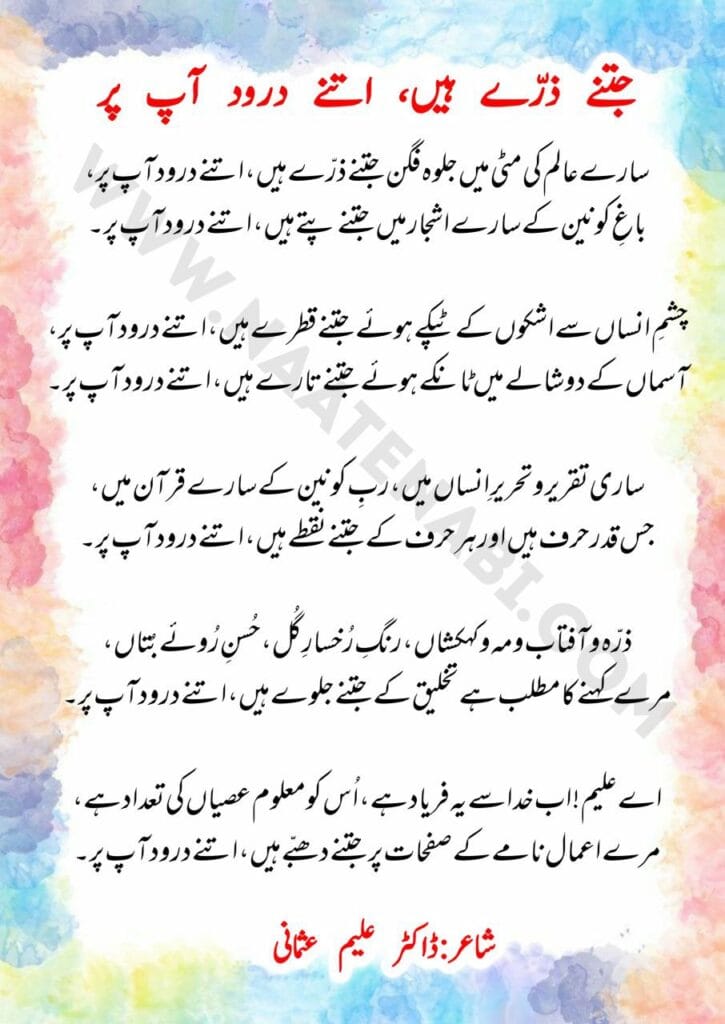 جتنے ذرّے ہیں، اتنے درود آپ پر
سارے عالم کی مٹی میں جلوہ فگن جتنے ذرّے ہیں، اتنے درود آپ پر،
باغِ کونین کے سارے اشجار میں جتنے پتے ہیں، اتنے درود آپ پر۔
چشمِ انساں سے اشکوں کے ٹپکے ہوئے جتنے قطرے ہیں، اتنے درود آپ پر،
آسماں کے دوشالے میں ٹانکے ہوئے جتنے تارے ہیں، اتنے درود آپ پر۔
ساری تقریر و تحریرِ انساں میں، ربِ کونین کے سارے قرآن میں،
جس قدر حرف ہیں اور ہر حرف کے جتنے نقطے ہیں، اتنے درود آپ پر۔
ذرّہ و آفتاب و مہ و کہکشاں، رنگِ رُخسارِ گُل، حُسنِ رُوئے بُتاں،
مرے کہنے کا مطلب ہے تخلیق کے جتنے جلوے ہیں، اتنے درود آپ پر۔
اے علیم! اب خدا سے یہ فریاد ہے، اُس کو معلوم عصیاں کی تعداد ہے،
مرے اعمال نامے کے صفحات پر جتنے دھبّے ہیں، اتنے درود آپ پر۔
شاعر: ڈاکٹر علیم عثمانی
WWW.NAATENABI.COM